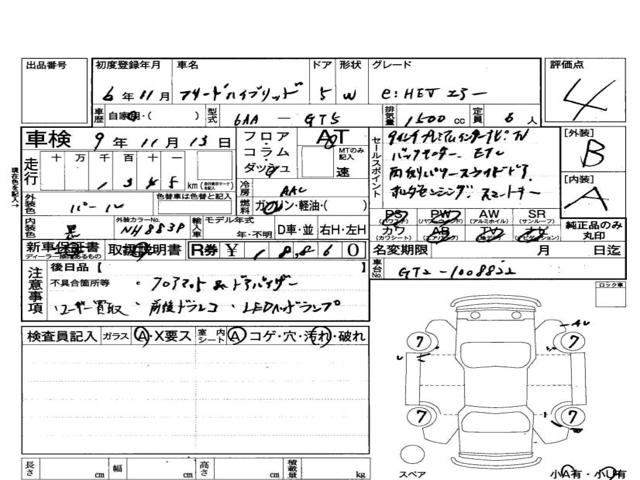 出品番号 初度登録年月 車名 ドア 形状 グレード 評価点
6年11月 フリードハイブリッド 5 W e:HEV エアー 4
車歴 自家用・( ) 型式 6AA - GT5 排気量 1500 cc 定員 6人
車検 9年11月13日 フロア コラム ダッシュ AT MTのみ記入 速 セールスポイント
[外装] B
[内装] A
走行 十万 万 千 百 十 一 km
バックセンサー ETC
両側パワースライドドア
ホンダセンシング スマートキー
冷房 AAC
燃料 ガソリン・軽油・( )
外装色 パール 色替車は色替と記入
内装色 黒 外装カラーNo. NH883P
輸入車 モデル年式 年・不明 D車・並 右H・左H
PS PW AW SR
(パワステ) (パワーウィンドウ) (アルミホイル) (サンルーフ)
カワ AB TV ナビ
(カワシート) (エアバッグ) (テレビ) (ナビゲーション)
純正品のみ丸印
新車保証書 取扱説明書 R券 ¥ 18860
名変期限 月 日迄
車台No. GT2-1008822
ロック車
現在色を記入
注意事項 後日品 [
不具合箇所等 フロアマット & ドアバイザー
ユーザー買取・前後ドラレコ・LEDヘッドランプ
検査員記入 ガラス A・X要ス 室内シート A コゲ・穴・汚れ・破れ
7 7
7 7
スペア
小A有・小U有
長さ cm 幅 cm 高さ cm 積載量 kg